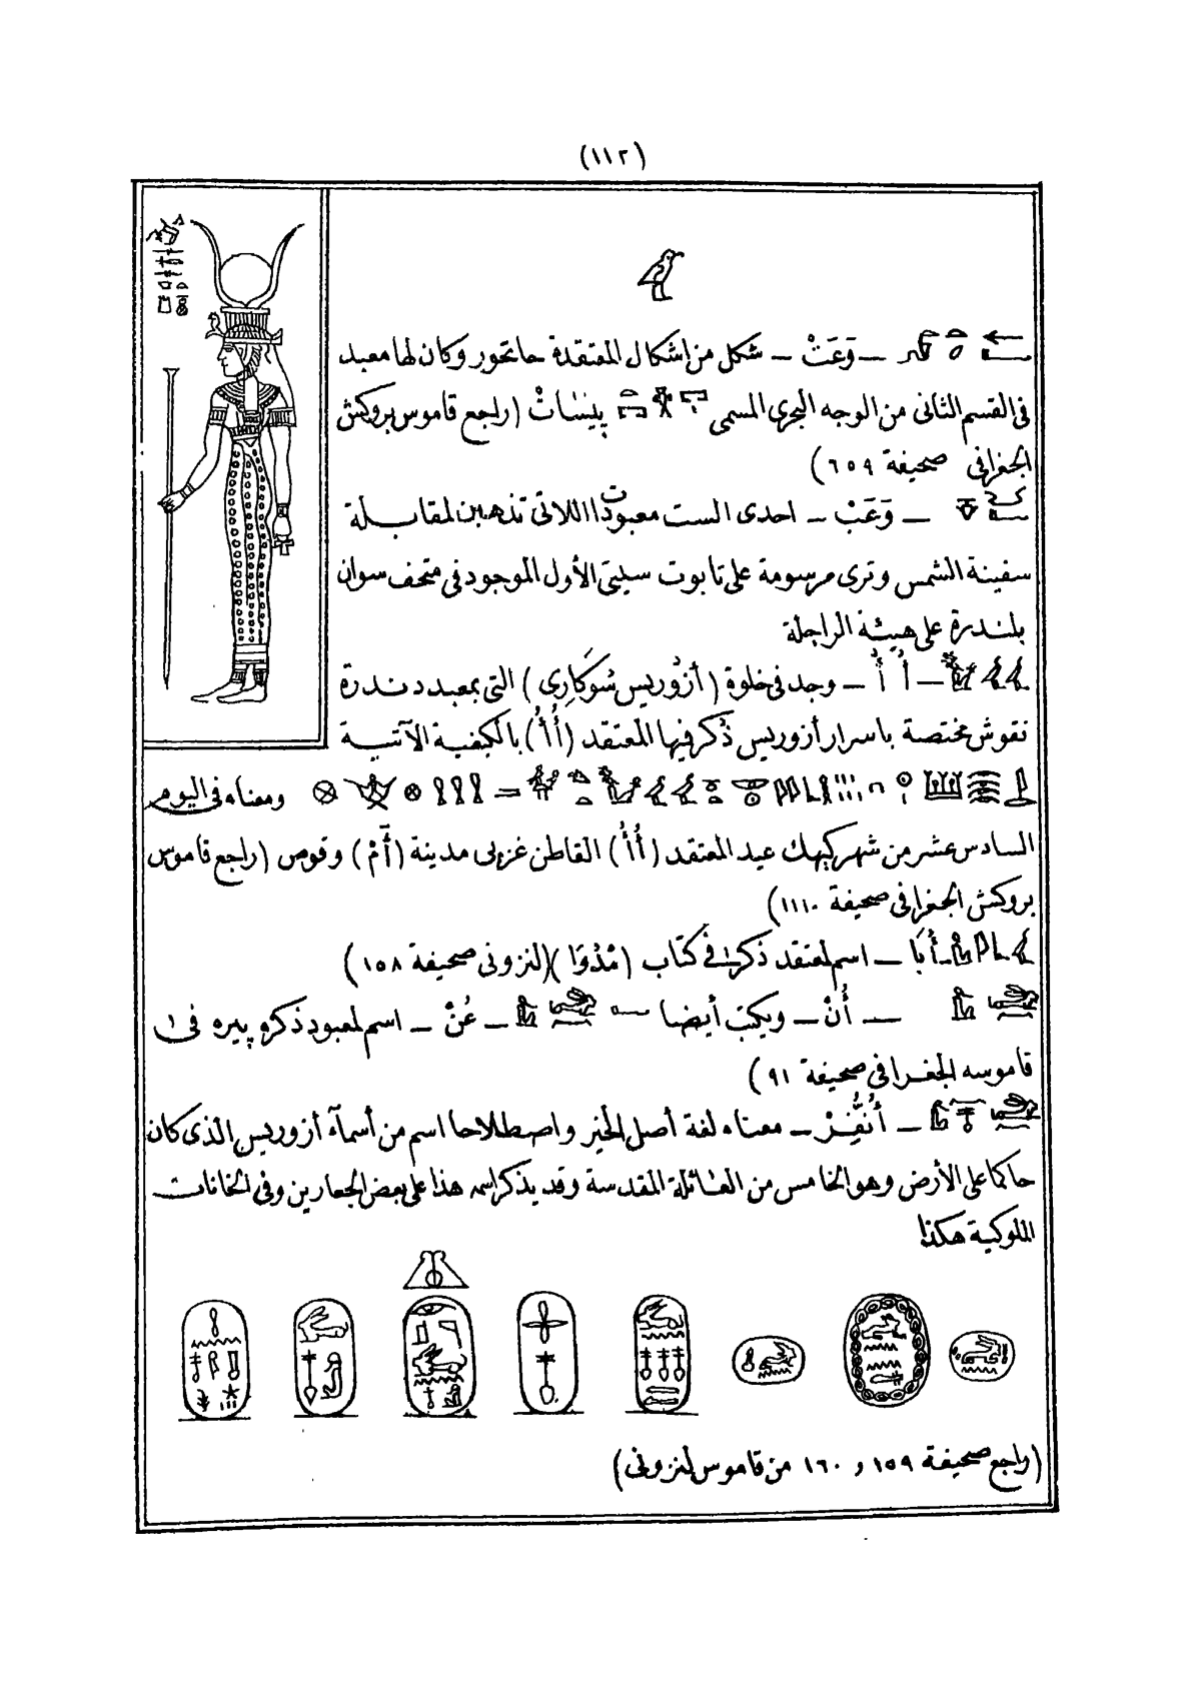 (١١٢)
ــ وَعَتْ ــ شكل من اشكال المعتقدة حاتحور وكان لها معبد
فى القسم الثانى من الوجه البحرى المسمى پيسات (راجع قاموس بروكش
الجغرافى صحيفة ٦٥٩)
ــ وَعَبْ ــ احدى الست معبودات اللاتى تذهبن لمقابلة
سفينة الشمس وترى مرسومة على تابوت سيتى الأول الموجود فى متحف سوان
بلندرة على هيئة الراجلة
ــ أُ أُ ــ وجد فى خلوة (أزوريس سُوكَارِى) التى بمعبد دندرة
نقوش مختصة باسرار أزوريس ذكر فيها المعتقد (أُأُ) بالكيفية الآتية
ومعناه فى اليوم
السادس عشر من شهر كيهك عيد المعتقد (أُأُ) القاطن غربى مدينة (أَمْ) وقوص (راجع قاموس
بروكش الجغرافى صحيفة ١١١٠)
ــ أُبَا ــ اسم لمعتقد ذكر فى كتاب (مْدُوَا) (لنزونى صحيفة ١٥٨)
ــ أُنْ ــ ويكتب أيضا ــ عُنْ ــ اسم لمعبود ذكره پيره فى
قاموسه الجغرافى صحيفة ٩١)
ــ أُنْنُفِرْ ــ معناه لغة أصل الخير واصطلاحا اسم من أسمآء أزوريس الذى كان
حاكما على الأرض وهو الخامس من العائلة المقدسة وقد يذكر اسمه هذا على بعض الجعارين وفى الخانات
الملوكية هكذا
(راجع صحيفة ١٥٩ و ١٦٠ من قاموس لنزونى)